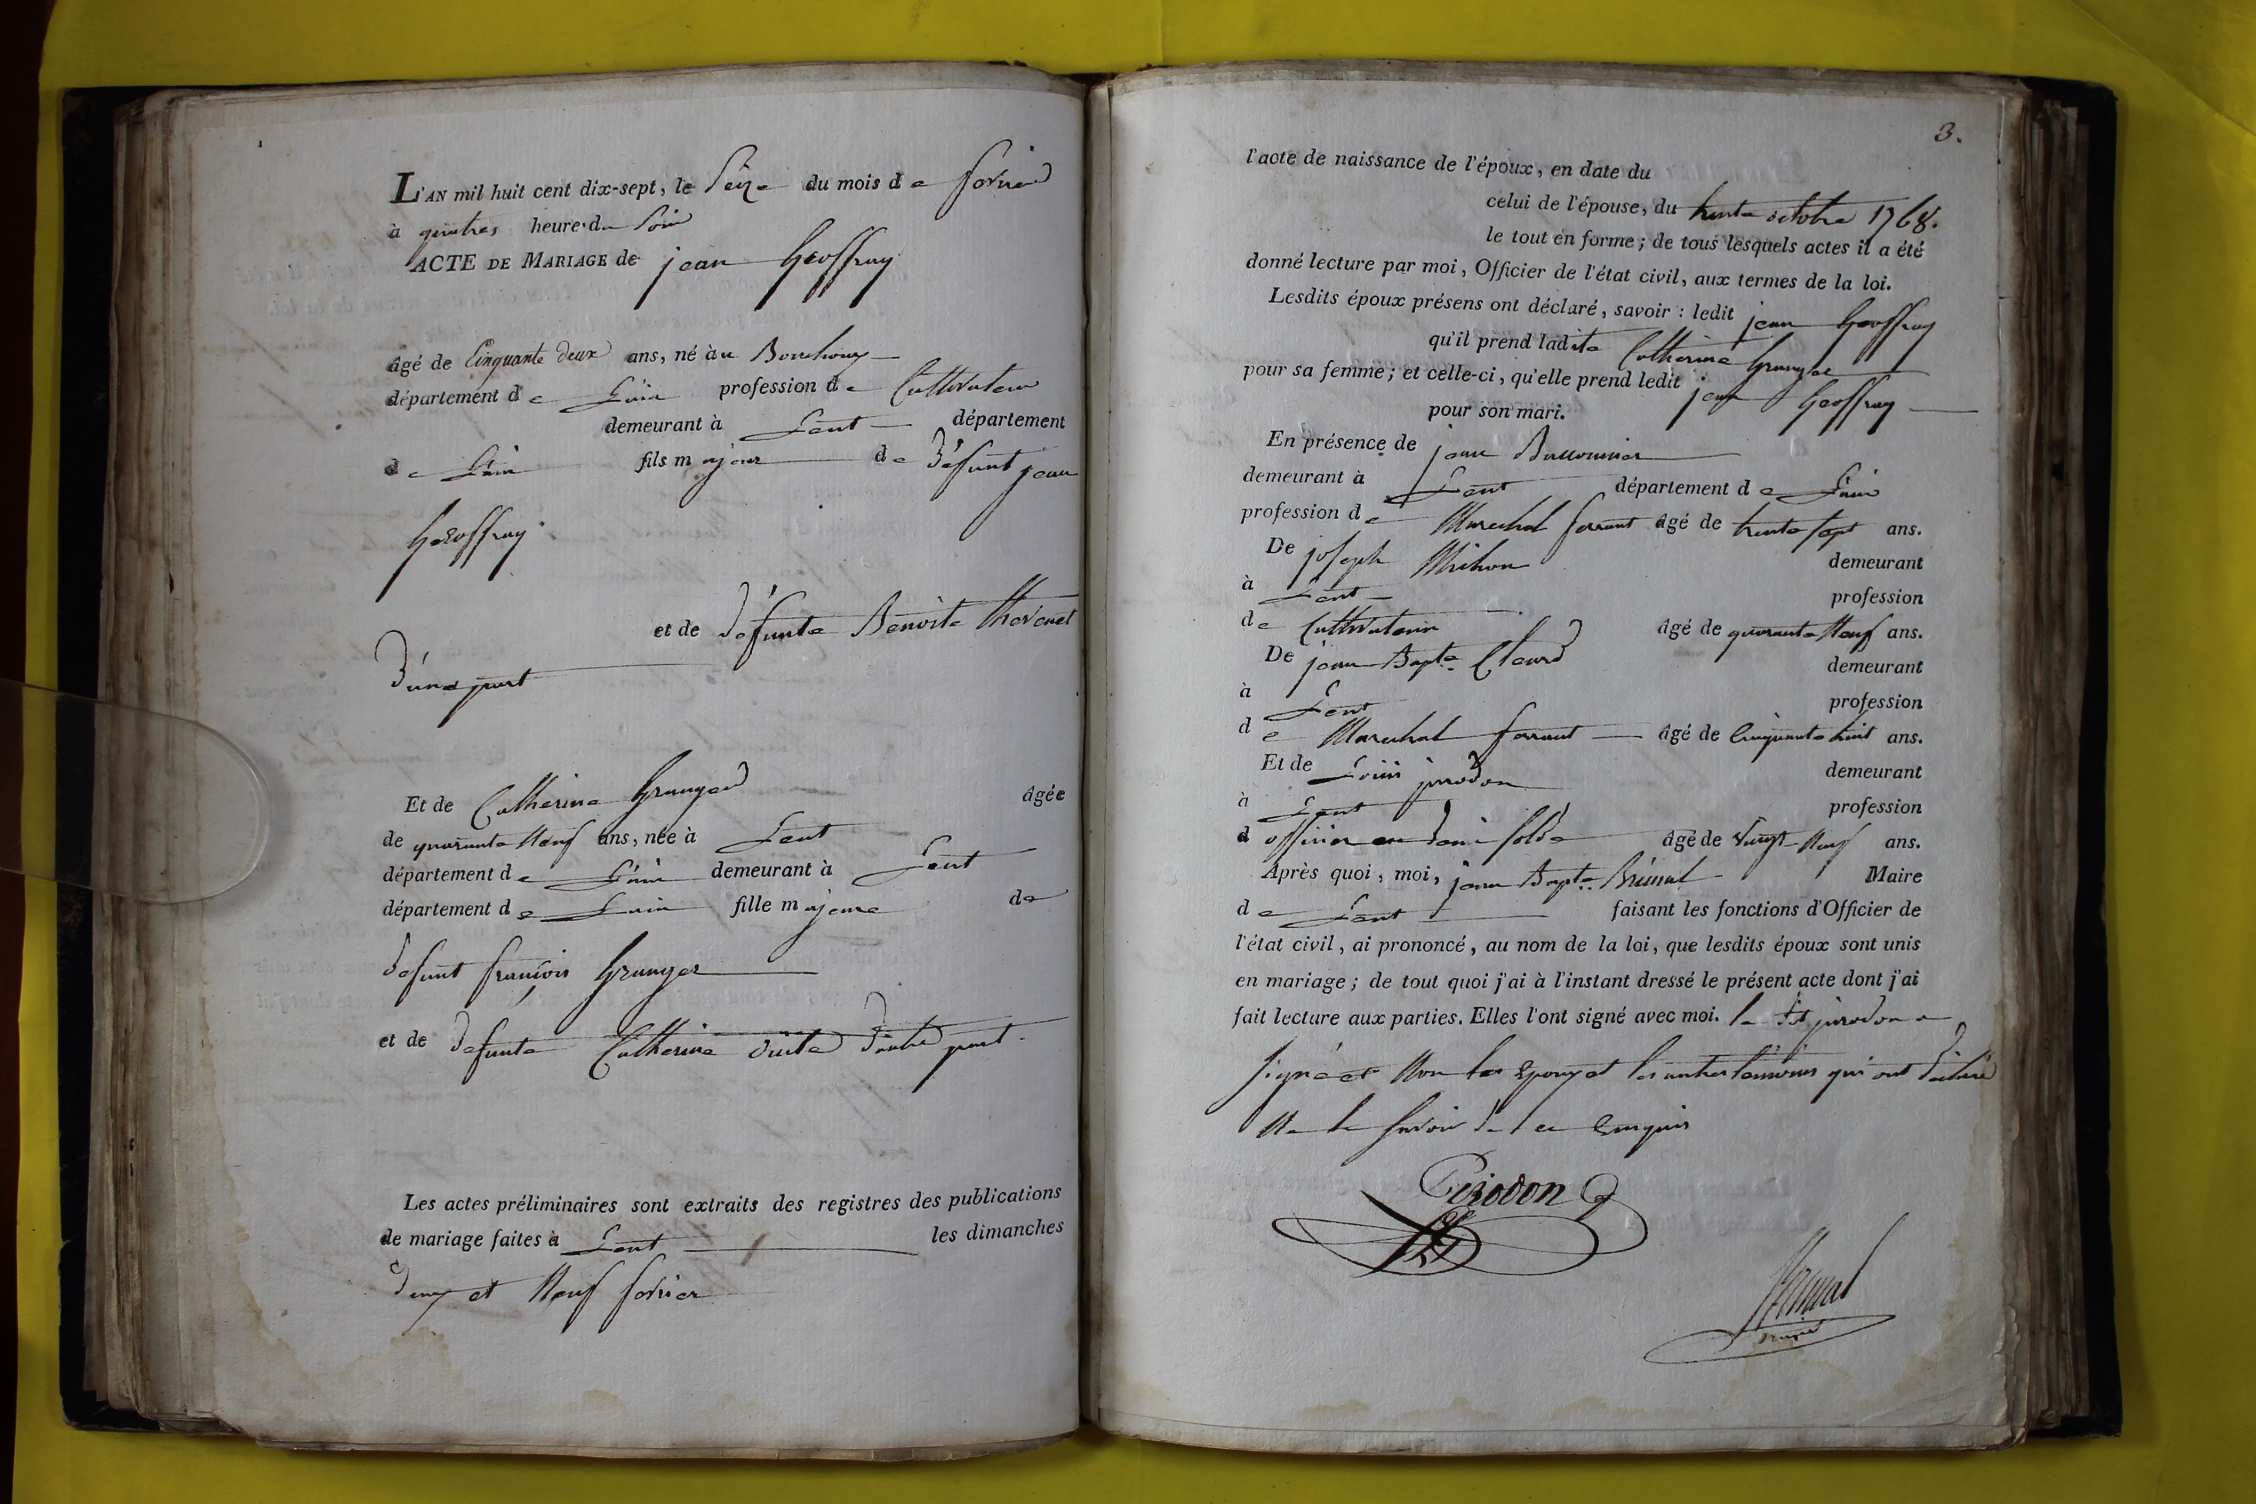 L'AN mil huit cent dix-sept, le Seize du mois de fevrier
à quatres heures du Soir
ACTE DE MARIAGE de jean Geoffray
âgé de Cinquante deux ans, né au Bouchoux
département de L'ain profession de Cultivateur
demeurant à Lent département
de L'ain fils majeur de Défunt jean
Geoffray
et de défunte Benoite thevenet
D'une part
Et de Catherine Granger âgée
de quarante Neuf ans, née à Lent
département de L'ain demeurant à Lent
département de L'ain fille majeure de
défunt françois Granger
et de defunte Catherine D'autre part.
Les actes préliminaires sont extraits des registres des publications
de mariage faites à Lent les dimanches
Deux et Neuf fevrier
3.
l'acte de naissance de l'époux, en date du
celui de l'épouse, du trente octobre 1768.
le tout en forme ; de tous lesquels actes il a été
donné lecture par moi, Officier de l'état civil, aux termes de la loi.
Lesdits époux présens ont déclaré, savoir : ledit jean Geoffray
qu'il prend ladite Catherine Granger
pour sa femme ; et celle-ci, qu'elle prend ledit jean Geoffray
pour son mari.
En présence de jean
demeurant à Lent département de L'ain
profession de Marechal ferrant âgé de trente sept ans.
De joseph Michon demeurant
à Lent profession
de Cultivateur âgé de quarante Neuf ans.
De jean Bapte. Claud demeurant
à Lent profession
de Marechal ferrant âgé de Cinquante huit ans.
Et de Louis jirodon demeurant
à Lent profession
d officier en demi solde âgé de Vingt Neuf ans.
Après quoi, moi, jean Bapte. Maire
de Lent faisant les fonctions d'Officier de
l'état civil, ai prononcé, au nom de la loi, que lesdits époux sont unis
en mariage ; de tout quoi j'ai à l'instant dressé le présent acte dont j'ai
fait lecture aux parties. Elles l'ont signé avec moi. le dit jirodon a
signé et Non les Epoux et les autres temoins qui ont declaré
Ne le savoir de ce Enquis
Girodon